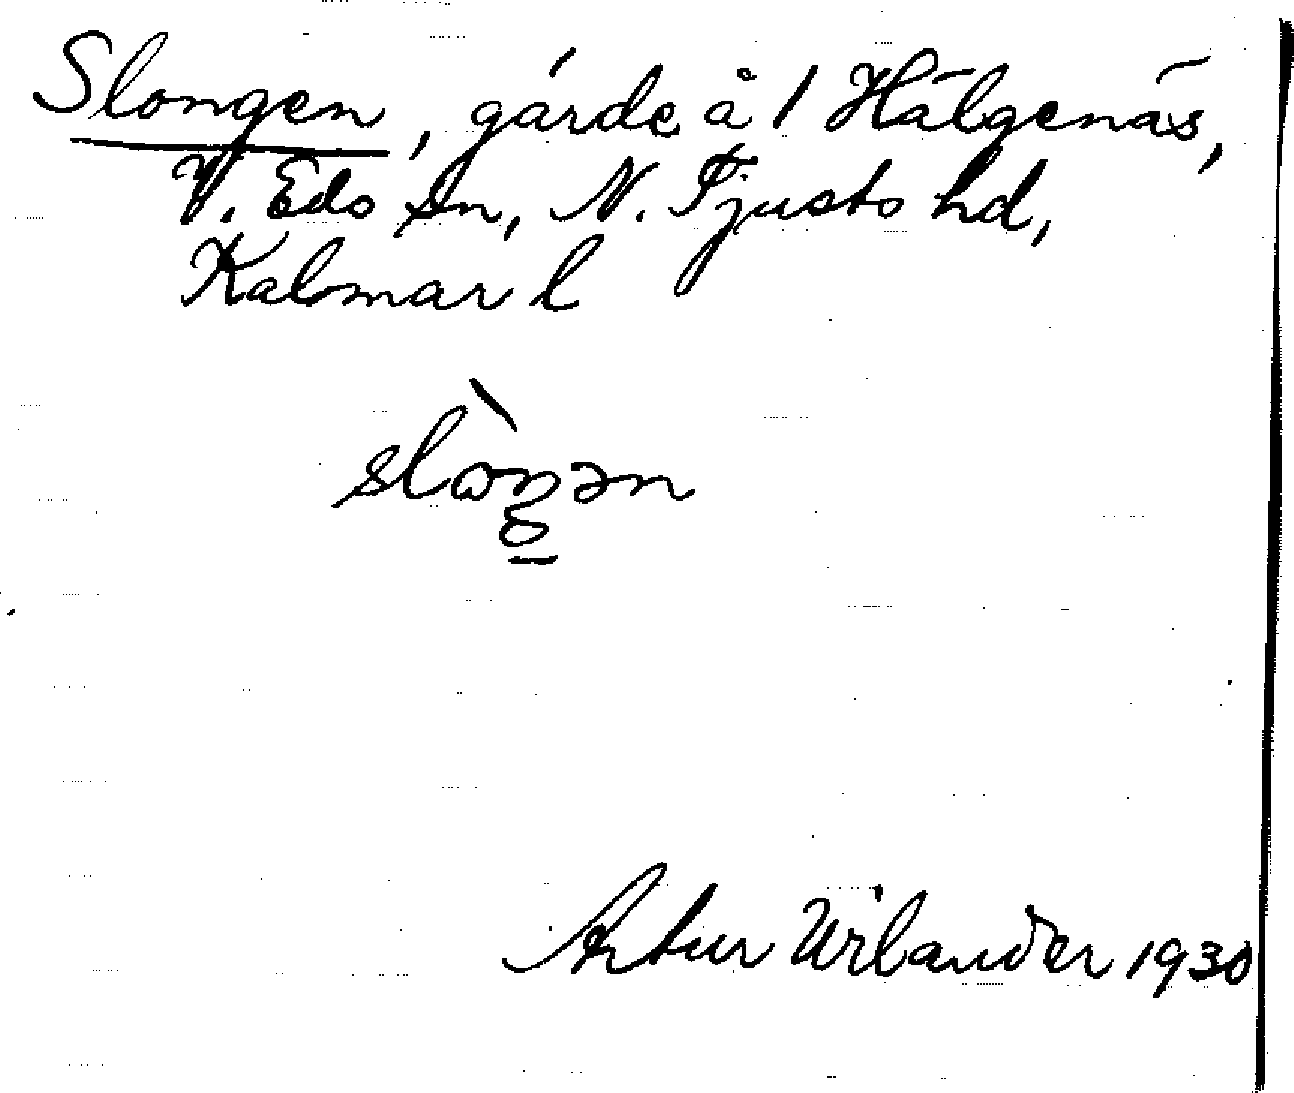 Slongen, gärde å 1 Hälgenäs,
V. Eds sn, N. Tjusts hd,
Kalmar l
slo̖ŋən
Artur Wilander 1930